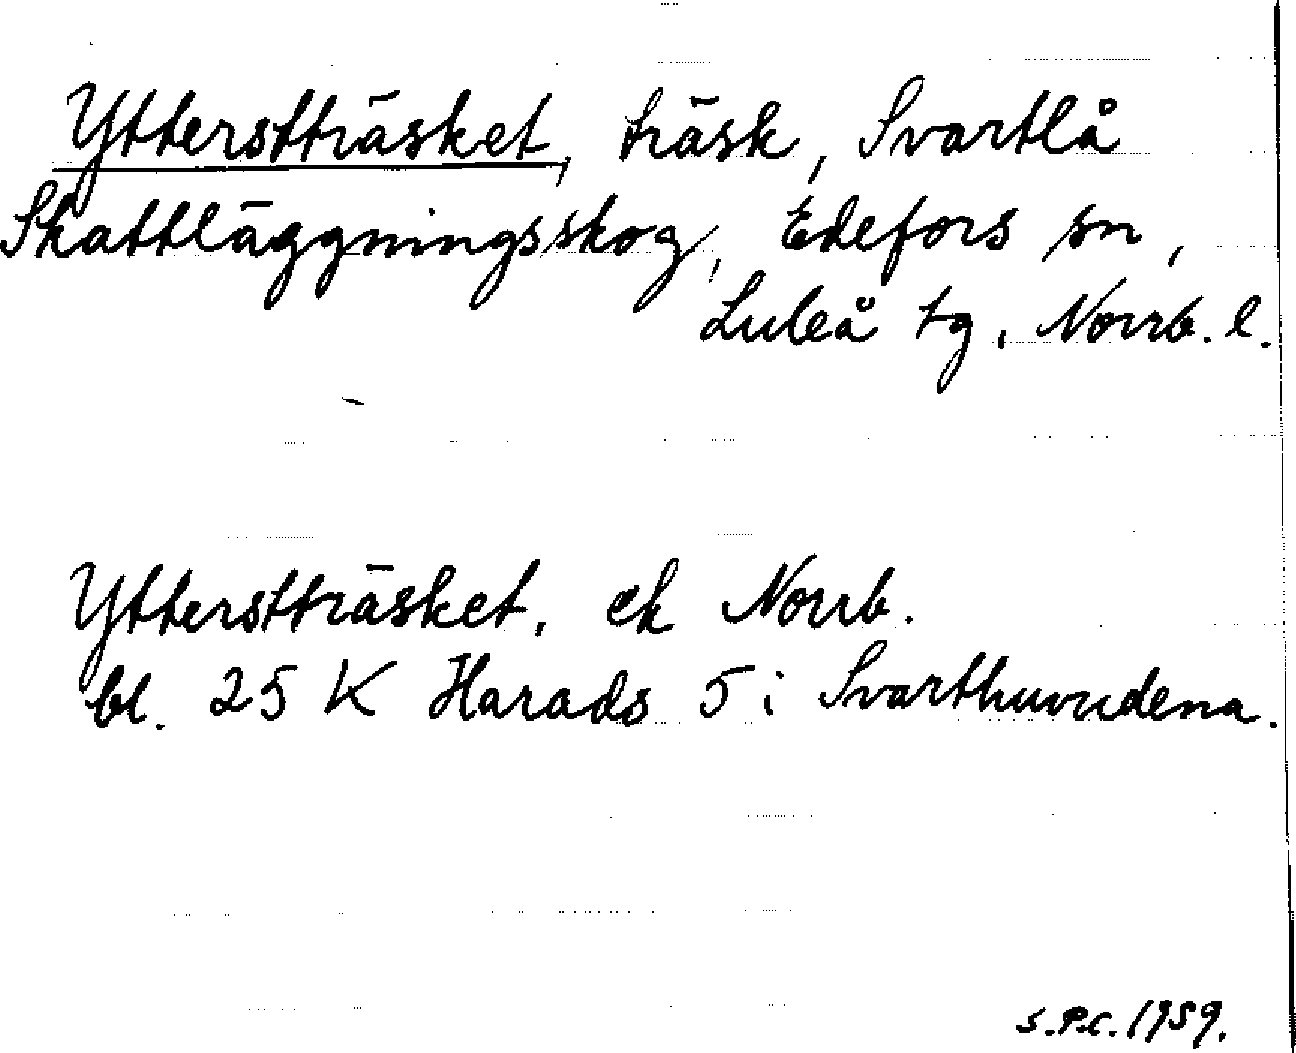 Ytterstträsket, träsk, Svartlå
Skattläggningsskog, Edefors sn,
Luleå tg, Norrb. l.
Ytterstträsket, ek Norrb.
bl. 25 K Harads 5 i Svarthuvudena.
S.P.C. 1959.